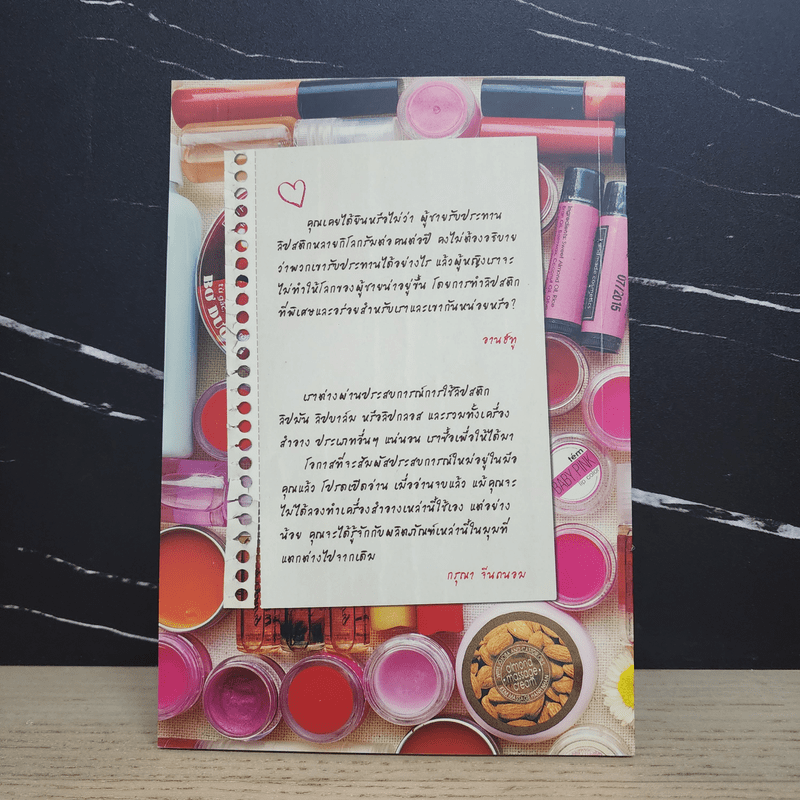 คุณเคยได้ยินหรือไม่ว่า ผู้ชายรับประทาน
ลิปสติกหลายกิโลกรัมต่อคนต่อปี คงไม่ต้องอธิบาย
ว่าพวกเขารับประทานได้อย่างไร แล้วผู้หญิงเราจะ
ไม่ทำให้โลกของผู้ชายน่าอยู่ขึ้น โดยการทำลิปสติก
ที่พิเศษและอร่อยสำหรับเราและเขากันหน่อยหรือ?
อานฮ์ทู
เราต่างผ่านประสบการณ์การใช้ลิปสติก
ลิปมัน ลิปบาล์ม หรือลิปกลอส และรวมทั้งเครื่อง
สำอาง ประเภทอื่นๆ แน่นอน เราซื้อเพื่อให้ได้มา
โอกาสที่จะสัมผัสประสบการณ์ใหม่อยู่ในมือ
คุณแล้ว โปรดเปิดอ่าน เมื่ออ่านจบแล้ว แม้คุณจะ
ไม่ได้ลองทำเครื่องสำอางเหล่านี้ใช้เอง แต่อย่าง
น้อย คุณจะได้รู้จักกับผลิตภัณฑ์เหล่านี้ในมุมที่
แตกต่างไปจากเดิม
กรุณา จีนถนอม
07/2015
tém
BABY PINK
almond
massage
cream